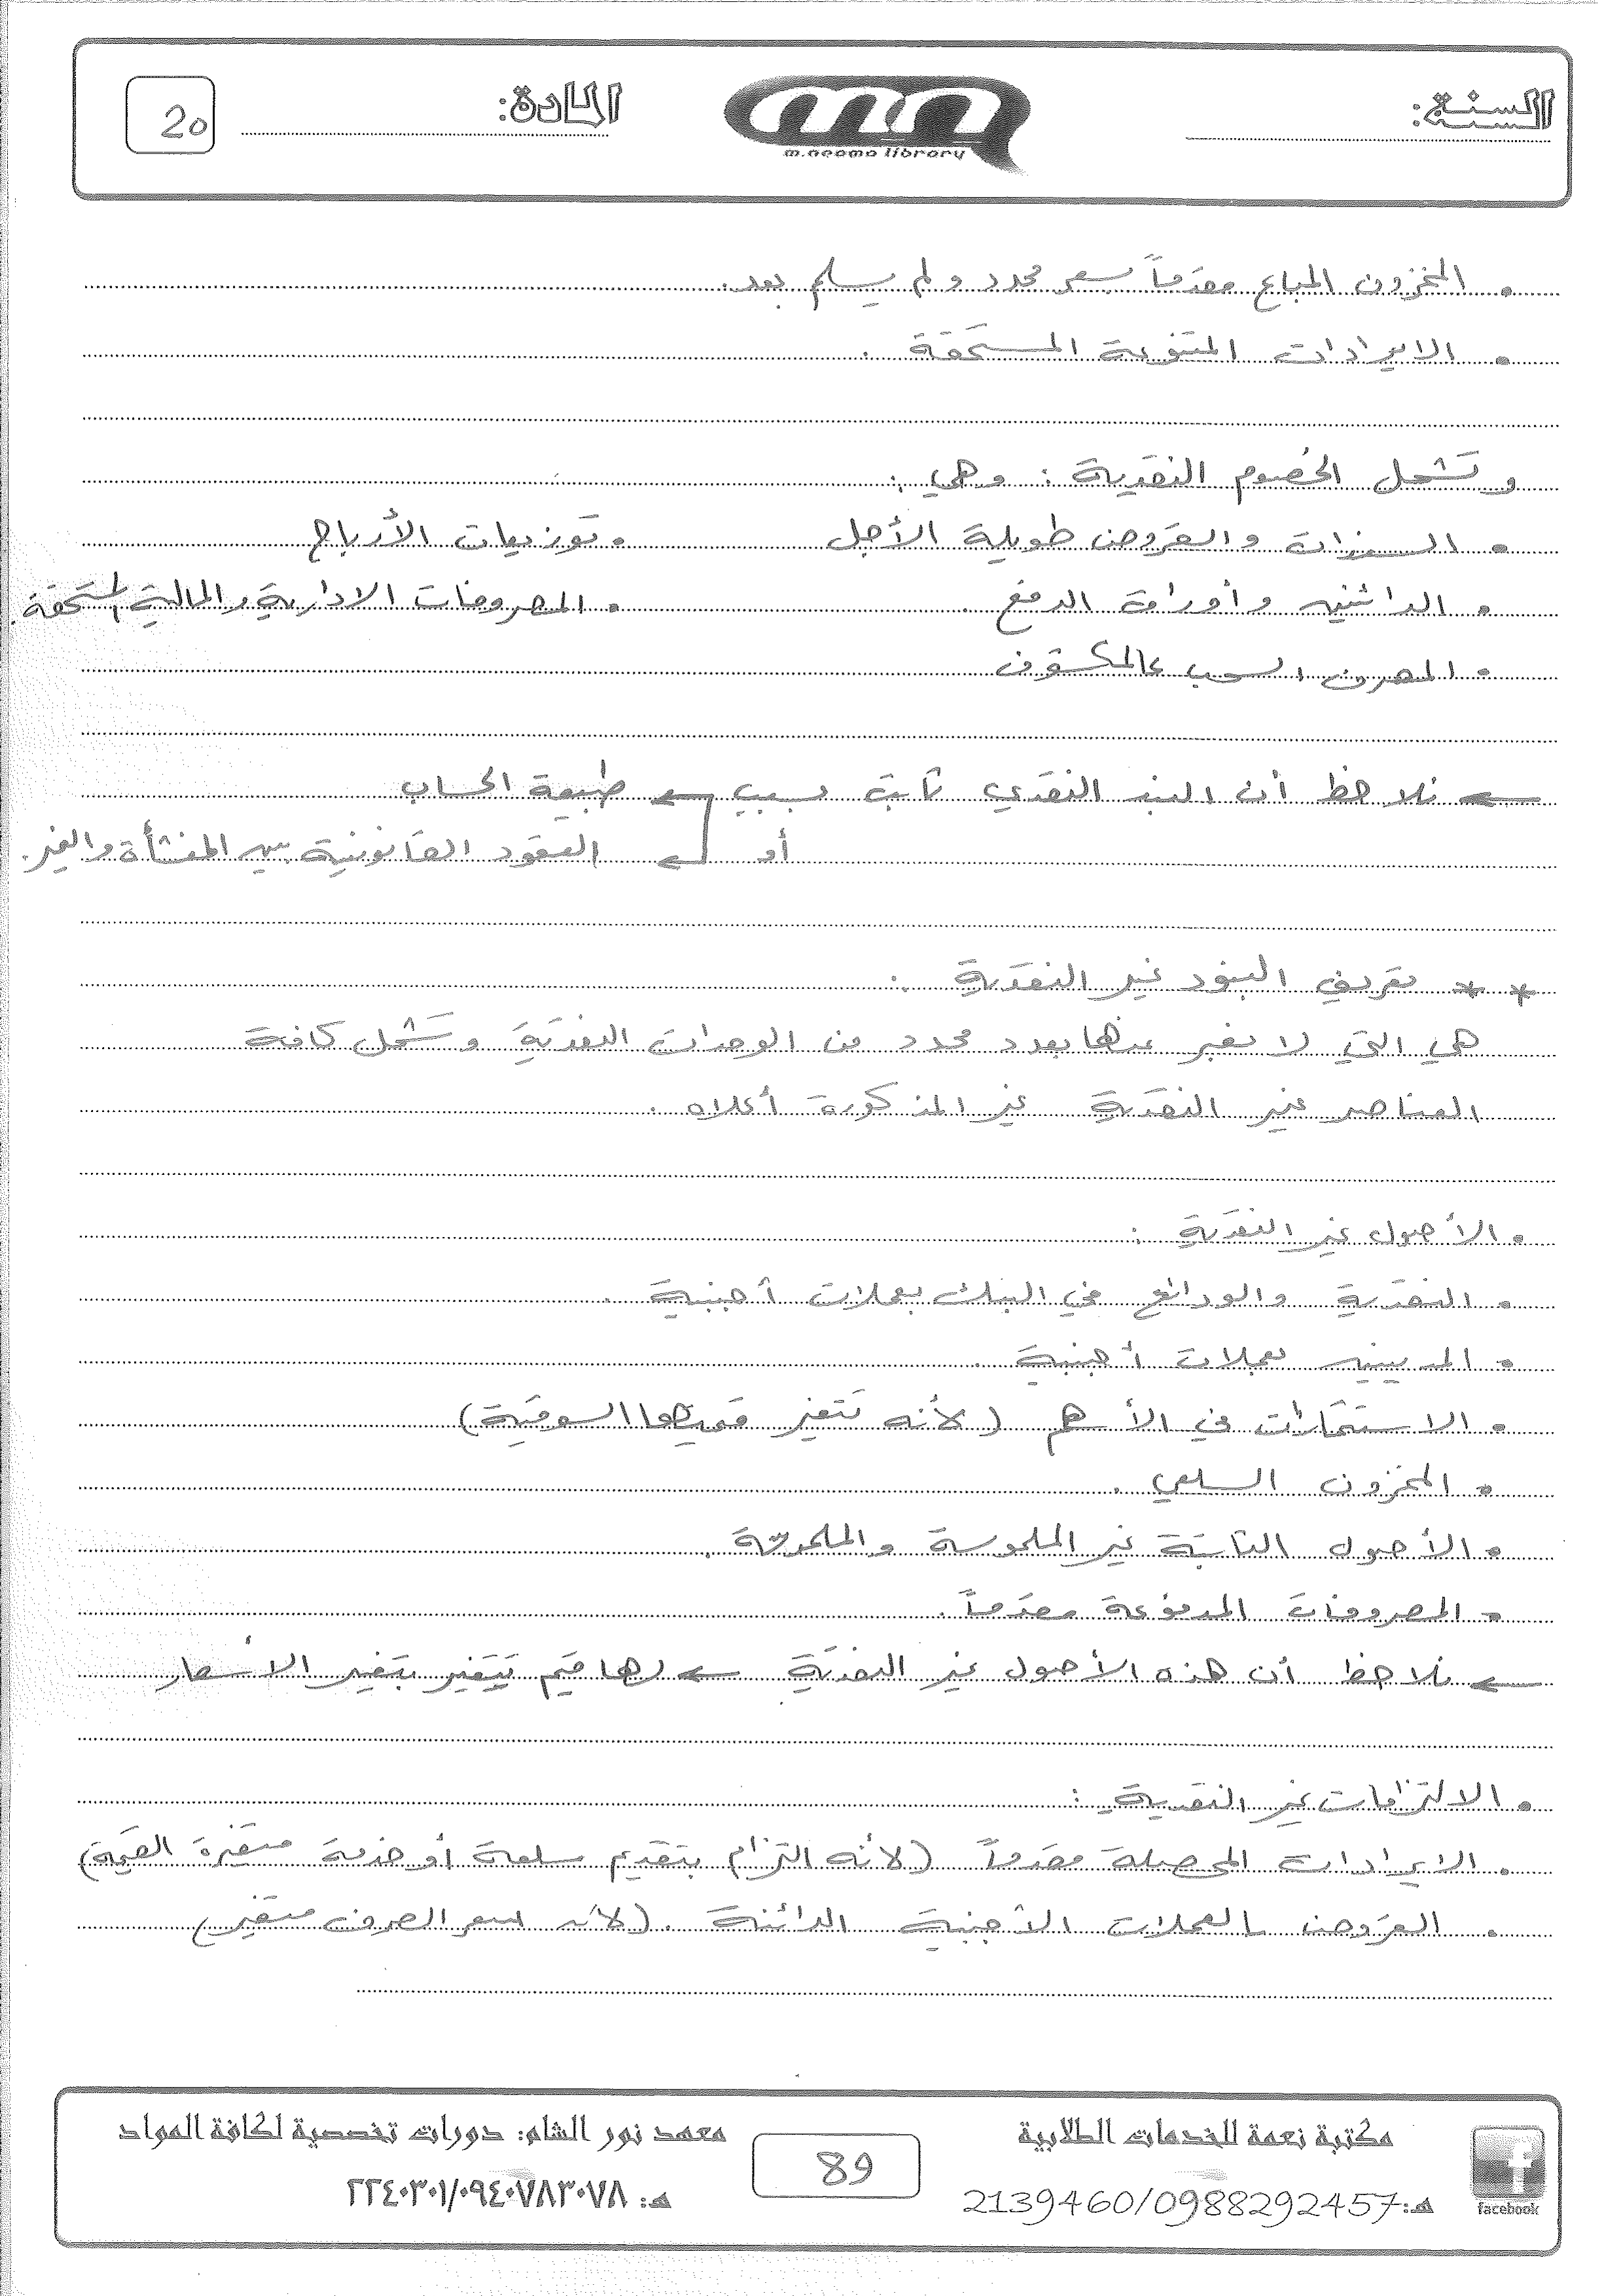 السنة:
m.neama library
المادة:
20
• المخزون المباع مقدماً بسعر محدد ولم يسلم بعد.
• الايرادات المتنوعة المستحقة .
وتشمل الخصوم النقدية : وهي :
• السندات والقروض طويلة الأجل • توزيعات الأرباح
• الدائنين وأوراق الدفع . • المصروفات الادارية والمالية المستحقة.
• المصرف السحب عالمكشوف
← نلاحظ أن البند النقدي ثابت بسبب ← طبيعة الحساب
أو ← العقود القانونية بين المنشأة والغير.
** تعريف البنود غير النقدية :
هي التي لا يعبر عنها بعدد محدد من الوحدات النقدية وتشمل كافة
العناصر غير النقدية غير المذكورة أعلاه .
• الأصول غير النقدية :
• النقدية والودائع في البنك بعملات أجنبية .
• المدينين بعملات أجنبية .
• الاستثمارات في الأسهم (لأنه تتغير قميتها السوقية)
• المخزون السلعي .
• الأصول الثابتة غير الملموسة والملموسة .
• المصروفات المدفوعة مقدماً .
← نلاحظ أن هذه الأصول غير النقدية ← لها قيم تتغير بتغير الأسعار
• الالتزامات غير النقدية :
• الايرادات المحصلة مقدماً (لأنه التزام بتقديم سلعة أو خدمة متغيرة القيمة)
• القروض بالعملات الأجنبية الدائنة . (لأن سعر الصرف متغير)
facebook
مكتبة نعمة للخدمات الطلابية
هـ: 2139460/0988292457
89
معهد نور الشام: دورات تخصصية لكافة المواد
هـ: ٢٢٤٠٣٠١/٠٩٤٠٧٨٣٠٧٨